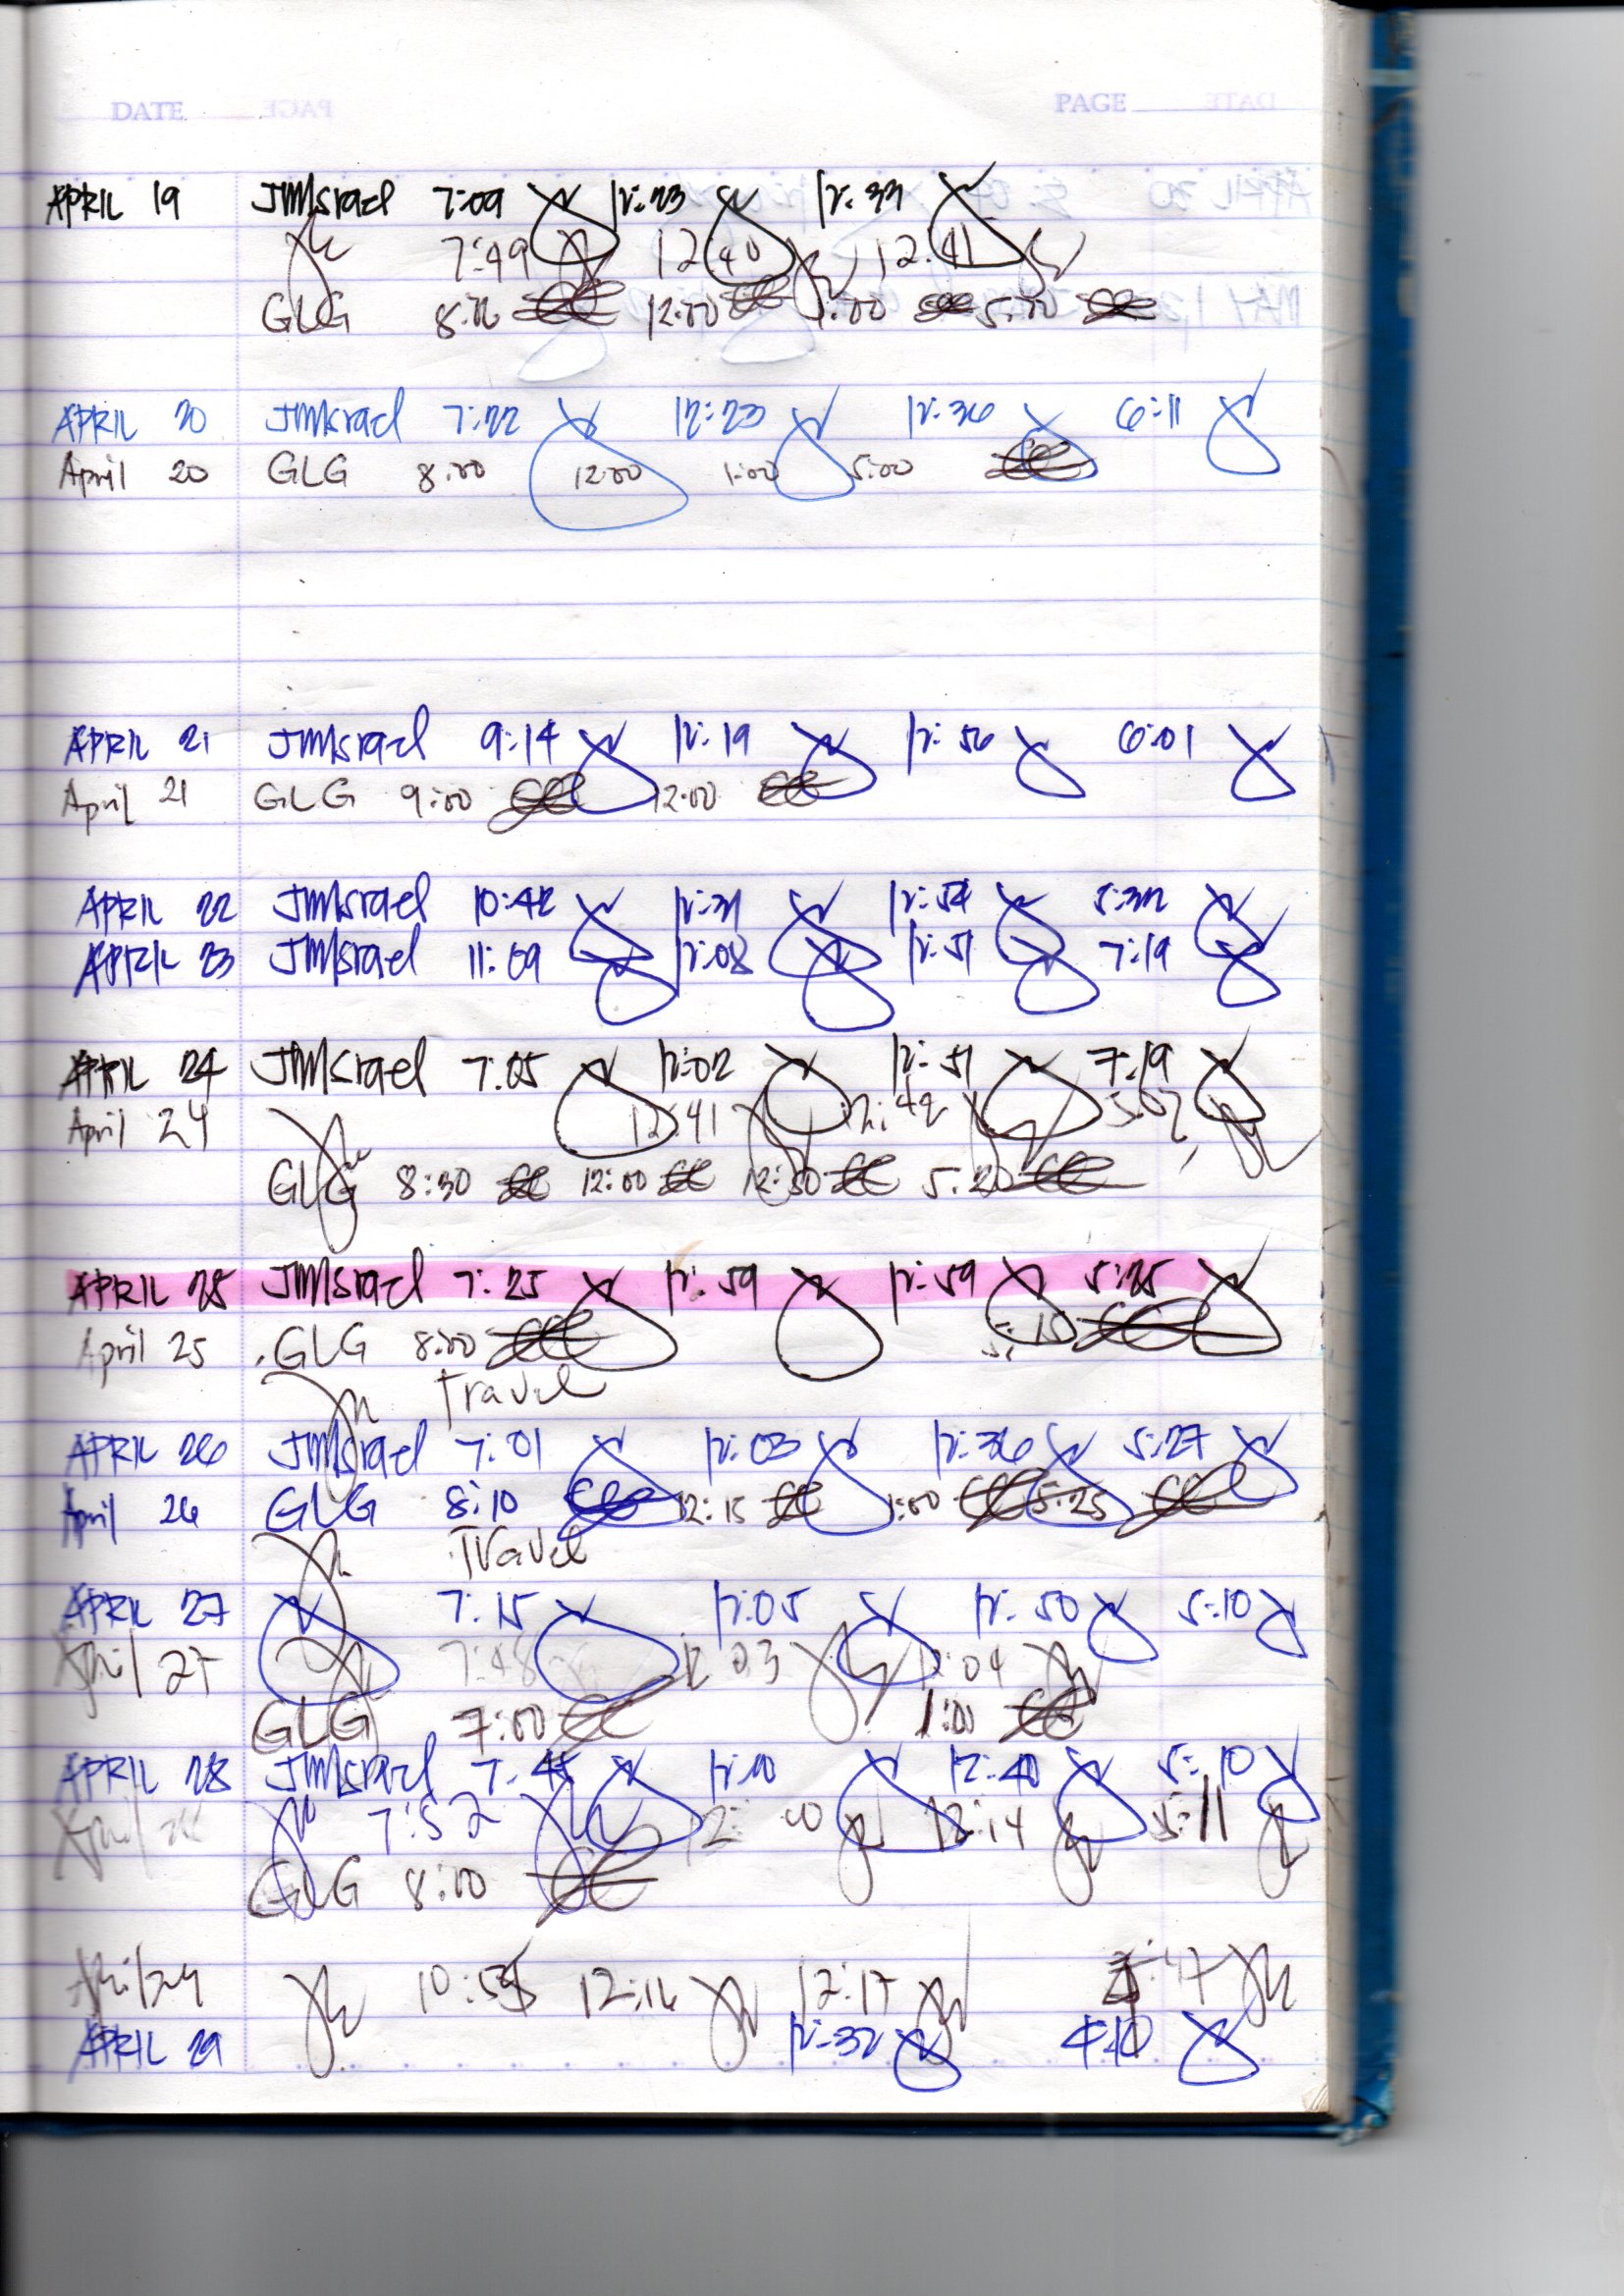 DATE PAGE
APRIL 19 JMIsrael 7:09 12:23 12:33
7:49 12:40 12:41
GLG 12:00 1:00 5:00
APRIL 20 JMIsrael 7:22 12:23 12:36 6:11
April 20 GLG 8:00 12:00 1:00 5:00
APRIL 21 JMIsrael 9:14 12:19 12:56 6:01
April 21 GLG 9:00 12:00
APRIL 22 JMIsrael 10:42 12:54
APRIL 23 JMIsrael 11:09 12:08 12:51 7:19
APRIL 24 JMIsrael 7:05 12:02 12:51 7:19
April 24 12:41 12:42
GLG 8:30 12:00 12:30 5:20
APRIL 25 JMIsrael 7:25 12:59 12:59 5:25
April 25 GLG 8:00 5:15
Travel
APRIL 26 JMIsrael 7:01 12:03 12:36 5:27
April 26 GLG 8:10 12:15 1:00 5:25
Travel
APRIL 27 7:15 12:05 12:50 5:10
April 27 7:48
GLG 7:00 1:00
APRIL 28 JMIsrael 12:40 5:10
7:52 12:14 5:11
GLG 8:00
April 29 12:16 12:17
APRIL 29 12:32 4:10